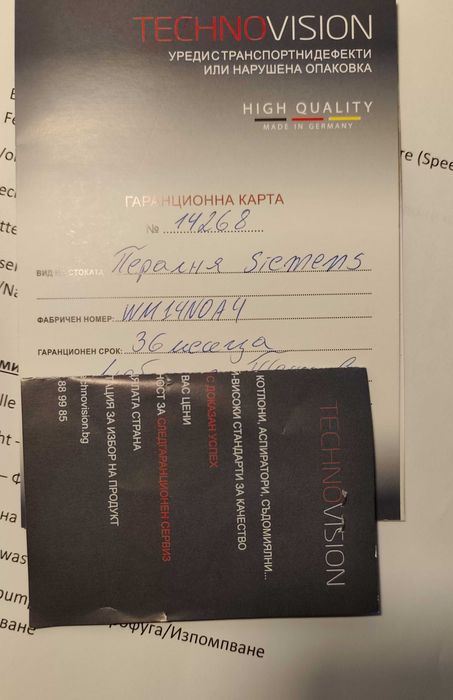 TECHNOVISION
УРЕДИ С ТРАНСПОРТНИ ДЕФЕКТИ
ИЛИ НАРУШЕНА ОПАКОВКА
HIGH QUALITY
MADE IN GERMANY
ГАРАНЦИОННА КАРТА
№ 14268
ВИД НА СТОКАТА Пералня Siemens
ФАБРИЧЕН НОМЕР: WM14N0A4
ГАРАНЦИОНЕН СРОК: 36 месеца
TECHNOVISION
КОТЛОНИ, АСПИРАТОРИ, СЪДОМИЯЛНИ...
-ВИСОКИ СТАНДАРТИ ЗА КАЧЕСТВО
С ДОКАЗАН УСПЕХ
ВАС ЦЕНИ
НОСТ ЗА СЛЕДГАРАНЦИОНЕН СЕРВИЗ
ЯЛАТА СТРАНА
АЦИЯ ЗА ИЗБОР НА ПРОДУКТ
chnovision.bg
88 99 85
re (Spee
офуга/Изпомпване